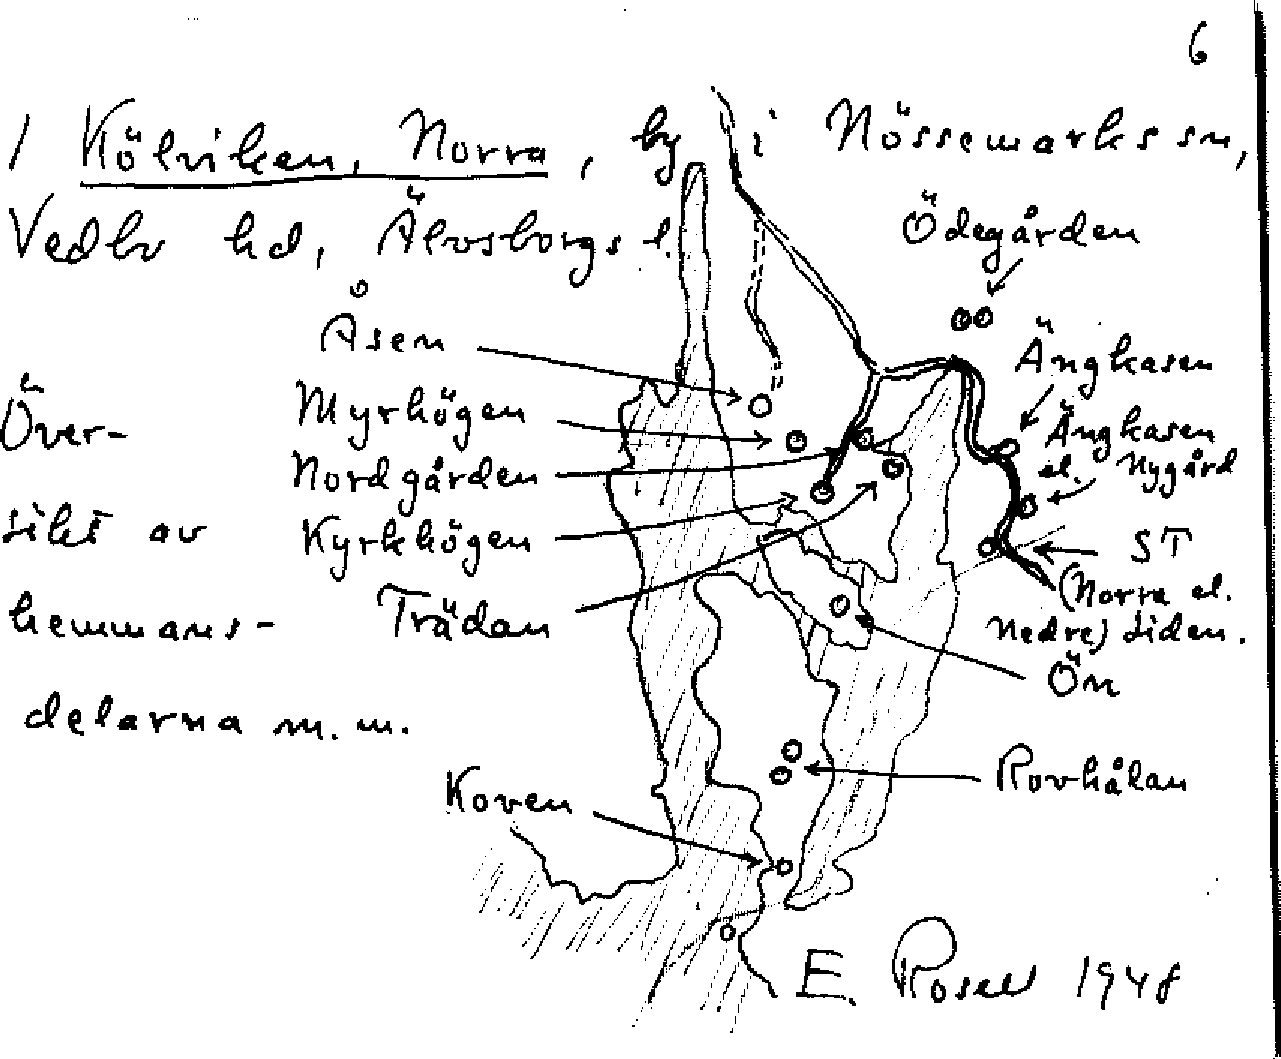 6
1 Kölviken, Norra, by i Nössemarks sn,
Vedbo hd, Älvsborgs l.
Ödegården
Åsen
Ängkasen
Över-
Myrhögen
Ängkasen
el. Nygård
Nordgården
sikt av
Kyrkhögen
ST
(Norra el.
Nedre) Liden.
hemmans-
Trädan
Ön
delarna m.m.
Rovhålan
Koven
E. Rosell 1948